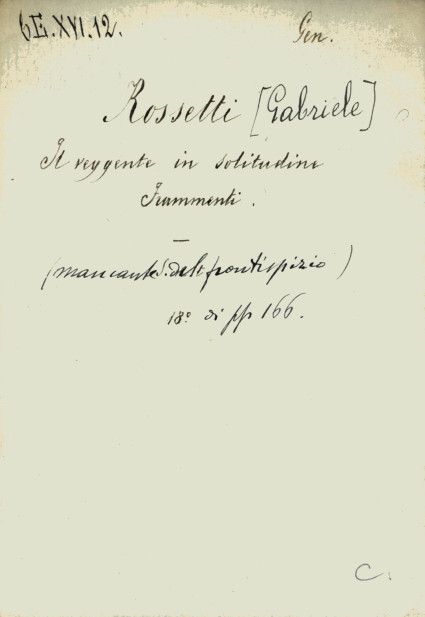 6E.XVI.12.
Gen.
Rossetti [Gabriele]
Il veggente in solitudine
Frammenti.
(mancante del frontispizio)
18º di pp 166.
C.